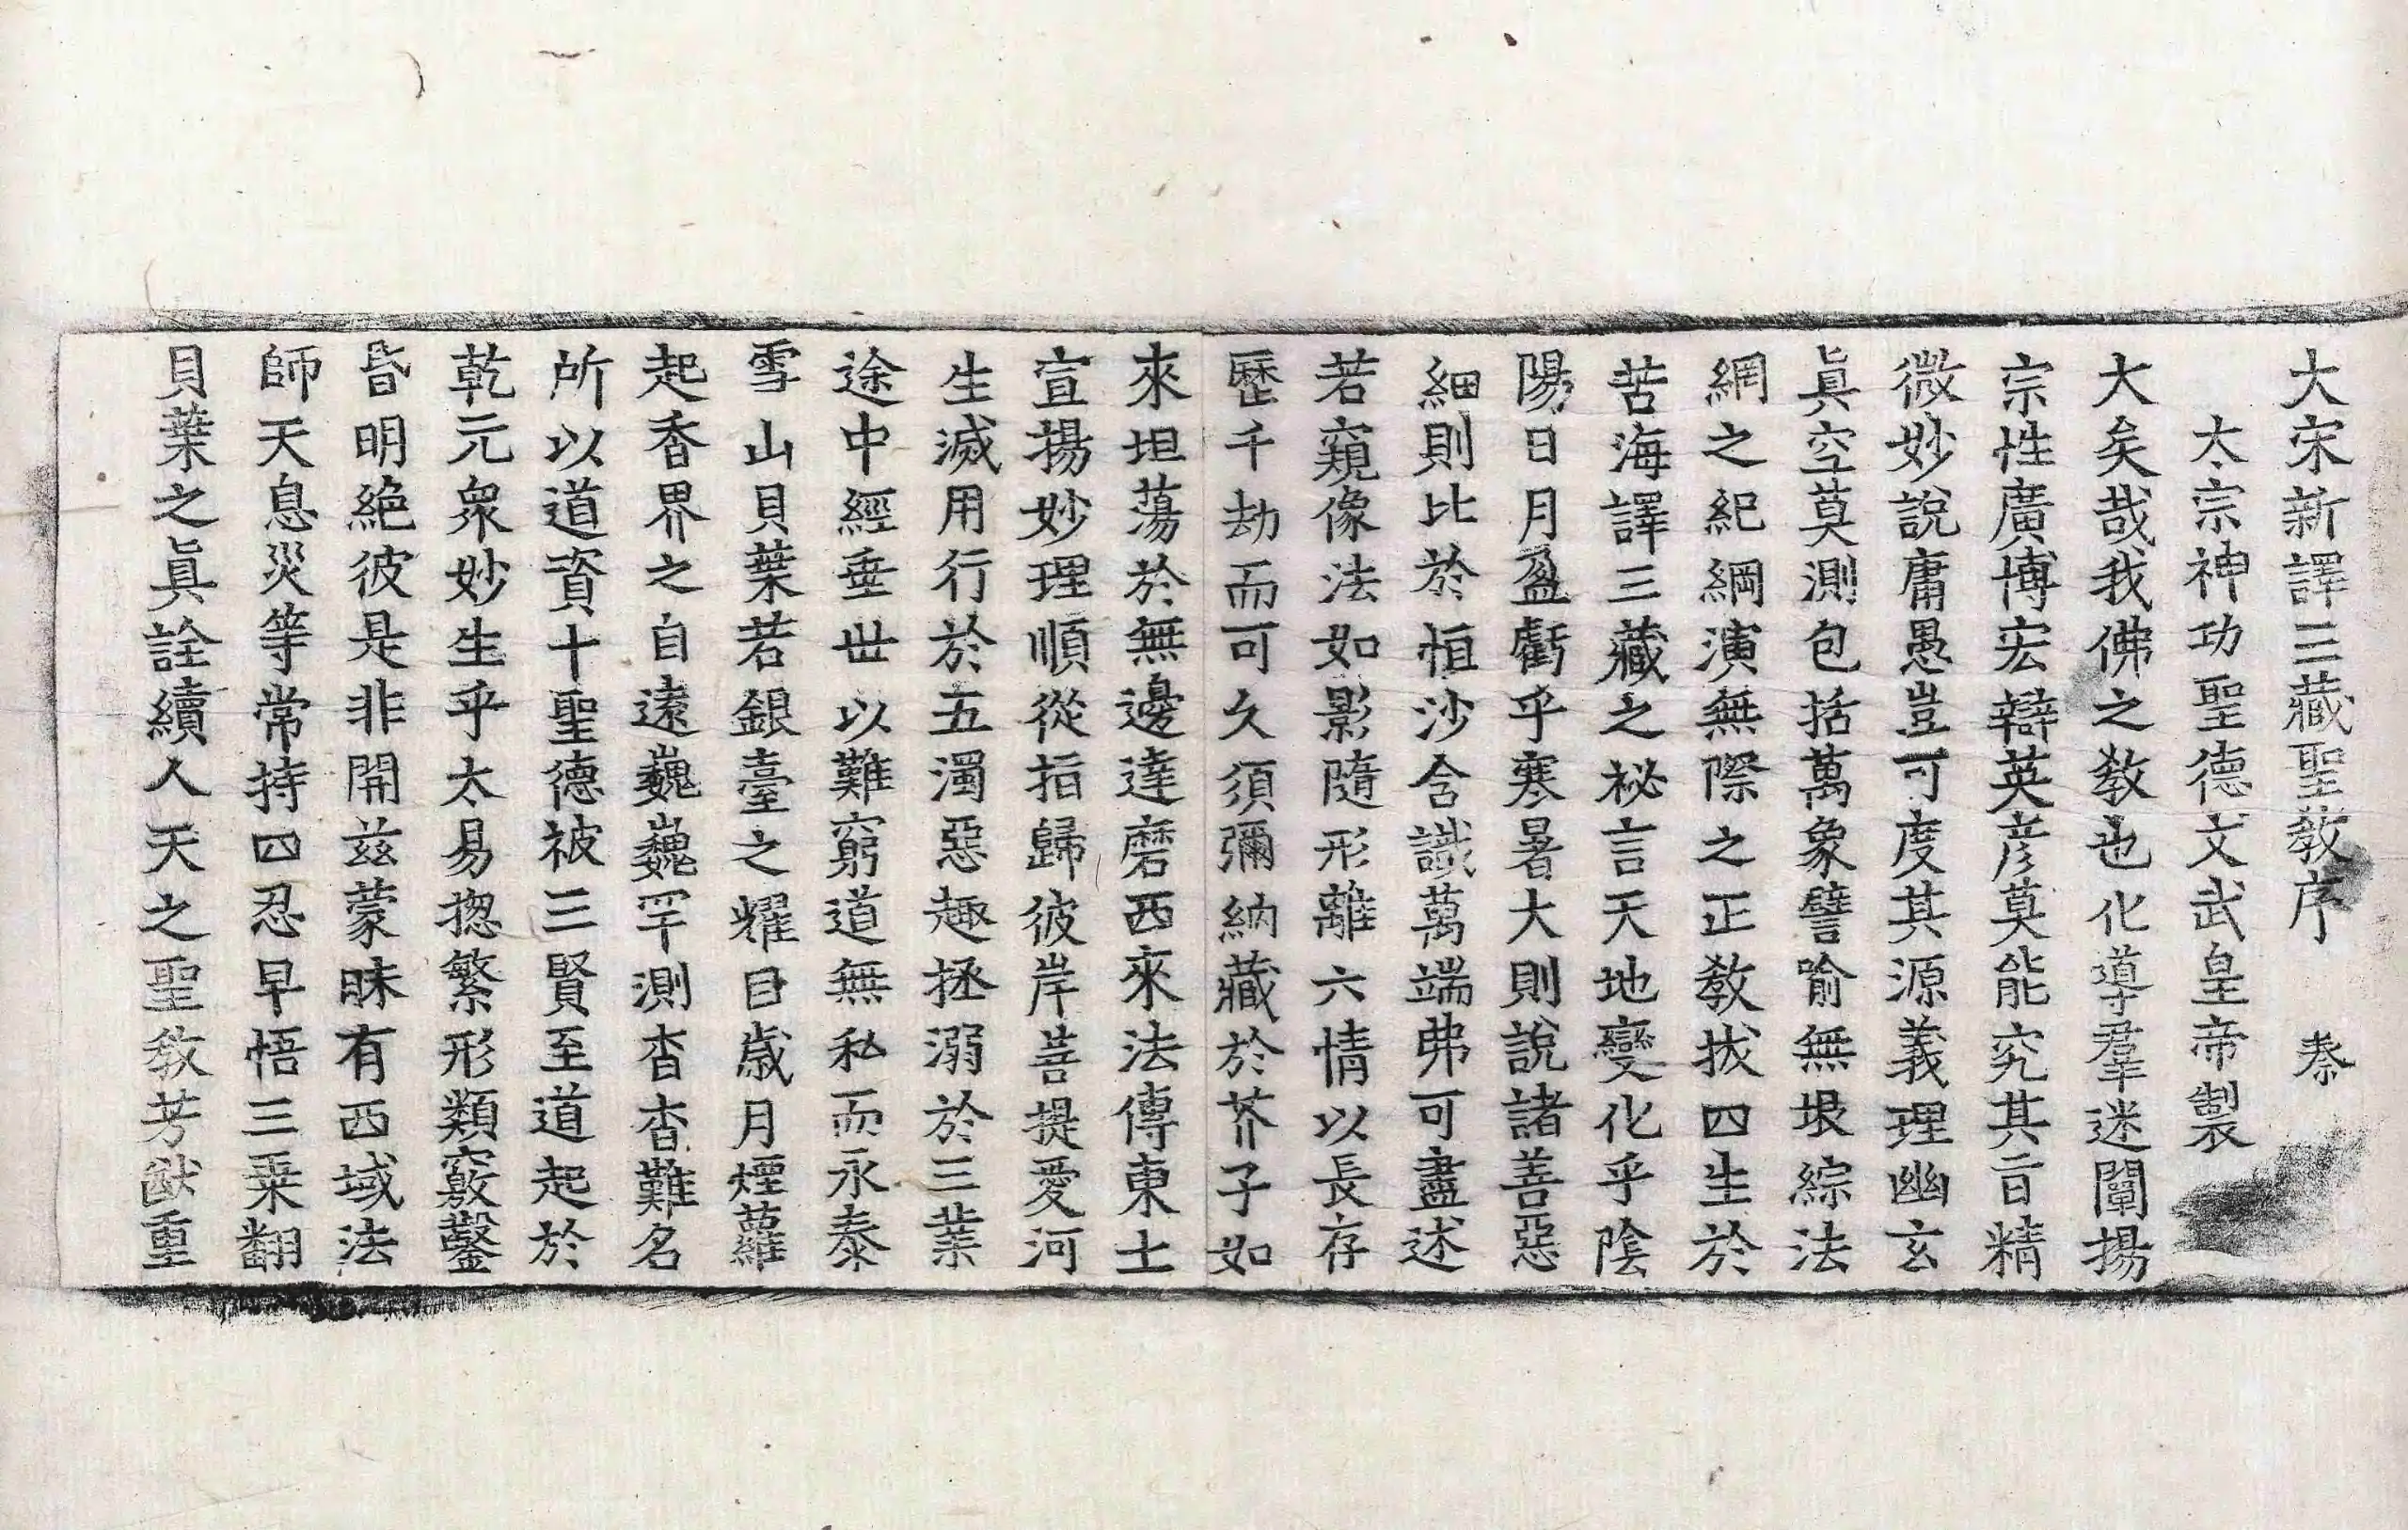 大宋新譯三藏聖教序　㮈
太宗神功聖德文武皇帝製
大矣哉我佛之教也化導羣迷闡揚
宗性廣博宏辯英彥莫能究其旨精
微妙說庸愚豈可度其源義理幽玄
眞空莫測包括萬象譬喻無垠綜法
網之紀綱演無際之正教拔四生於
苦海譯三藏之祕言天地變化乎陰
陽日月盈虧乎寒暑大則說諸善惡
細則比於恒沙含識萬端弗可盡述
若窺像法如影隨形離六情以長存
歷千劫而可久須彌納藏於芥子如
來坦蕩於無邊達磨西來法傳東土
宣揚妙理順從指歸彼岸菩提愛河
生滅用行於五濁惡趣拯溺於三業
途中經垂世以難窮道無私而永泰
雪山貝葉若銀臺之耀目歲月煙蘿
起香界之自遠巍巍罕測杳杳難名
所以道資十聖德被三賢至道起於
乾元衆妙生乎太易揔繁形類竅鑿
昏明絕彼是非開茲蒙昧有西域法
師天息災等常持四忍早悟三乘翻
貝葉之眞詮續人天之聖教芳猷重